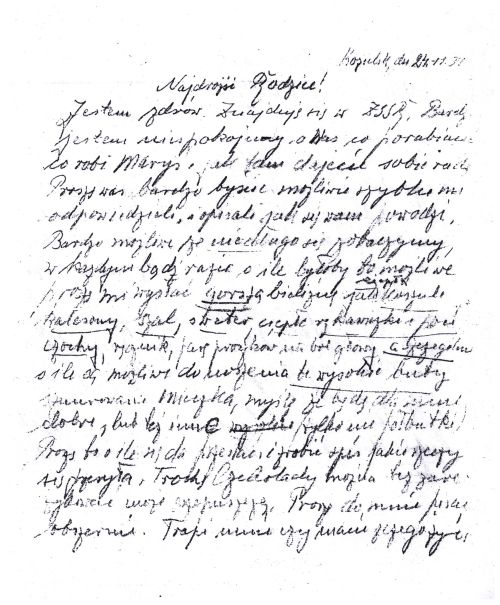 Kozielsk, dn 24.11.
Najdrożsi Rodzice!
Jestem zdrów. Znajduję się w ZSSR. Bardz
jestem niespokojny o Was co porabiacie
co robi Marys, jak tam dajecie sobie radę
Proszę was bardzo byście możliwie szybko mi
odpowiedzieli, i opisali jak się wam powodzi,
Bardzo możliwe że niedługo się zobaczymy,
w każdym bądź razie, o ile byłoby to możliwe
proszę mi wysłać gorszą bieliznę ciepłą jak koszule
kalesony, szal, sweter, ciepłe rękawiczki i poń
czochy, ręcznik, parę proszków na ból głowy, a szczególn
o ile da możliwe do włożenia te wysokie buty
sznurowane Mietka, myślę że będą dla mnie
dobre, lub też inne tylko nie półbutki
Proszę bo o ile się da przesłać zrobić spis jakie rzeczy
się wysyła, Trochę Czekolady można też
może przepuszczą. Proszę do mnie pisać
obszernie. Trapi mnie czy macie z czego żyć